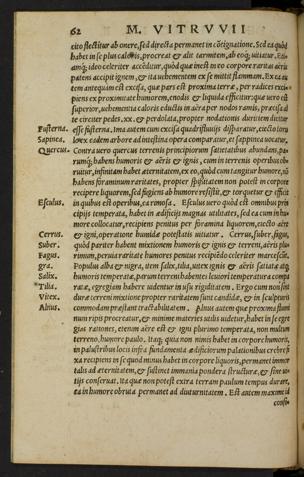 62 M. VITRVVII
cito flectitur ab onere, sed directa permanet in cōtignatione. Sed ea quòd
habet in se plus caloris, procreat & alit tarmitem, ab eoq; vitiatur. Eti-
amq; ideo celeriter accēditur, quòd quæ inest in eo corpore raritas aëris
patens accipit ignem, & ita vehementem ex se mittit flammam. Ex ea au
tem antequam est excisa, quæ pars est proxima terræ, per radices exci-
piens ex proximitate humorem, enodis & liquida efficitur: quæ vero est
superior, vehementia caloris eductis in aëra per nodos ramis, præcisa al
te circiter pedes .xx. & perdolata, propter nodationis duritiem dicitur
Fusterna. esse fusterna. Ima autem cum excisa quadrifluuijs disparatur, eiecto toru
Sapinea. lo ex eadem arbore ad intestina opera comparatur, et sappinea vocatur.
Quercus. Contra vero quercus terrenis principiorum satietatibus abundans, pa-
rumq; habens humoris & aëris & ignis, cum in terrenis operibus ob-
ruitur, infinitam habet æternitatem, ex eo, quòd cum tangitur humore, nō
habens foraminum raritates, propter spissitatem non potest in corpore
recipere liquorem, sed fugiens ab humore resistit, & torquetur & efficit
Esculus. in quibus est operibus, ea rimosa. Esculus vero quòd est omnibus prin
cipijs temperata, habet in ædificijs magnas utilitates, sed ea cum in hu-
more collocatur, recipiens penitus per foramina liquorem, eiecto aëre
Cerrus. & igni, operatione humidæ potestatis vitiatur. Cerrus, suber, fagus,
Suber. quòd pariter habent mixtionem humoris & ignis & terreni, aëris plu-
Fagus. rimum, peruia raritate humores penitus recipiēdo celeriter marcescūt.
Populus alba & nigra, item salix, tilia, vitex, ignis & aëris satietate
Salix. humoris temperatæ, parum terreni habentes leuiori temperatura compa
Tilia. ratæ, egregiam habere videntur in usu rigiditatem. Ergo cum non sint
Vitex. duræ terreni mixtione propter raritatem sunt candidæ, & in sculpturis
Alnus. commodam præstant tractabilitatem. Alnus autem quæ proxima flumi
num ripis procreatur, & minime materies utilis videtur, habet in se egre
gias rationes, etenim aëre est & igni plurimo temperata, non multum
terreno, humore paulo. Itaq; quia non nimis habet in corpore humoris,
in palustribus locis infra fundamenta ædificiorum palationibus crebre fi
xa recipiens in se quod minus habet in corpore liquoris, permanet immor
talis ad æternitatem, & sustinet immania pondera structuræ, & sine vi-
tijs conseruat. ita quæ non potest extra terram paulum tempus durare,
ea in humore obruta permanet ad diuturnitatem. Est autem maxime id